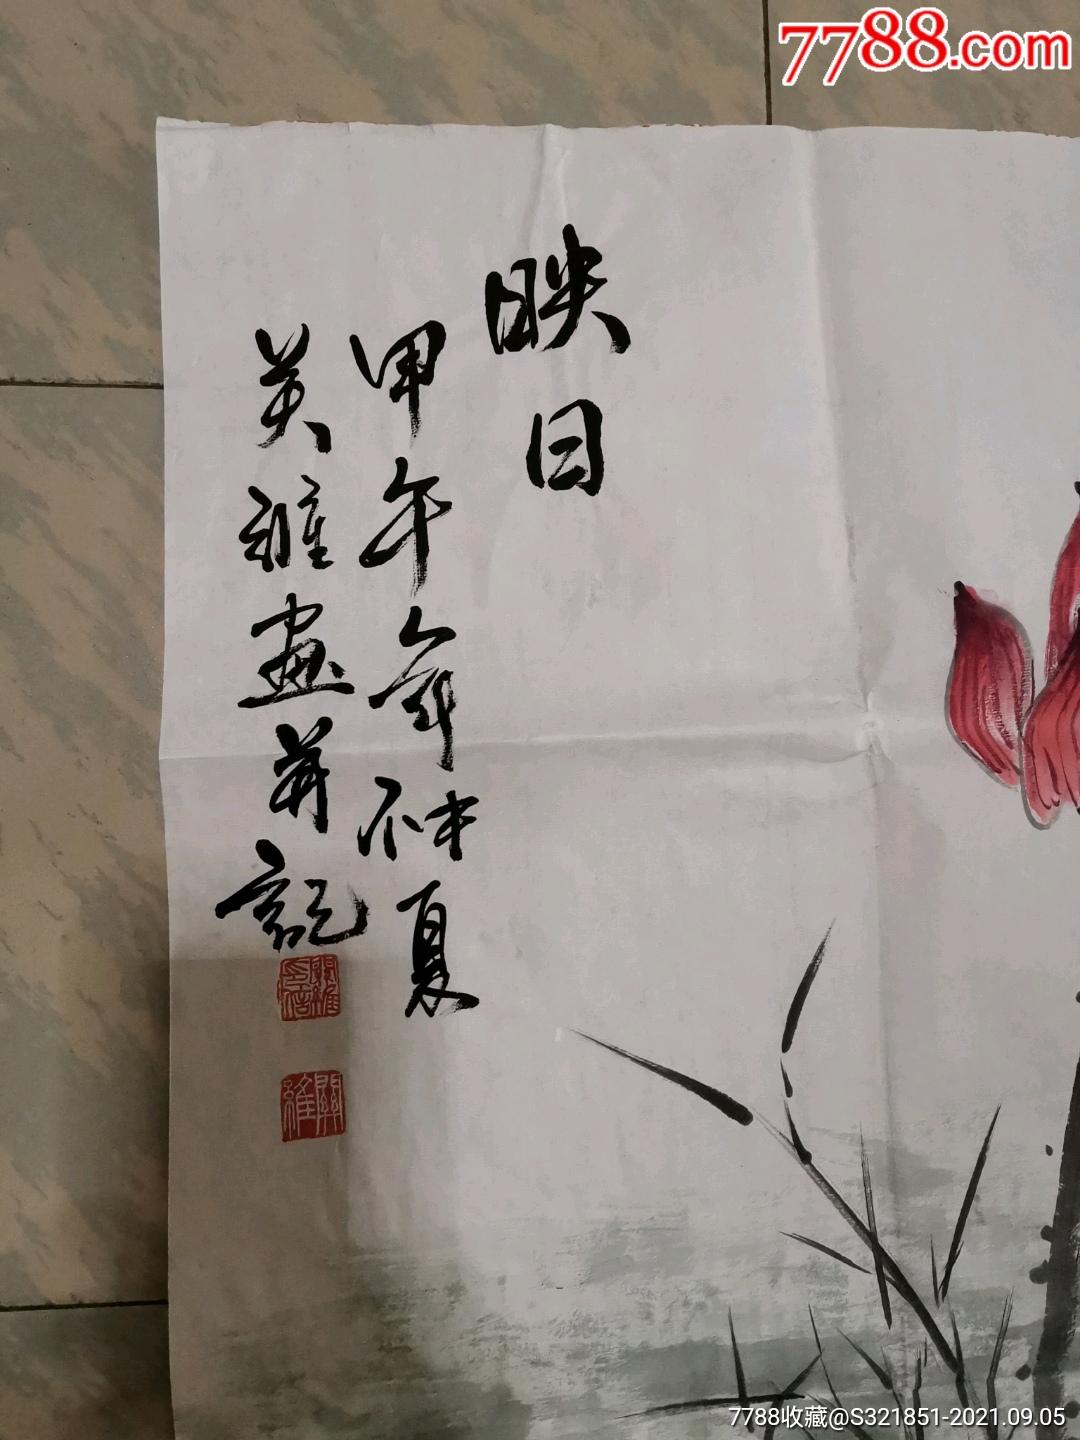 7788.com
映日
甲午年仲夏
关維畫并記
關維印信
關維
7788收藏@S321851-2021.09.05